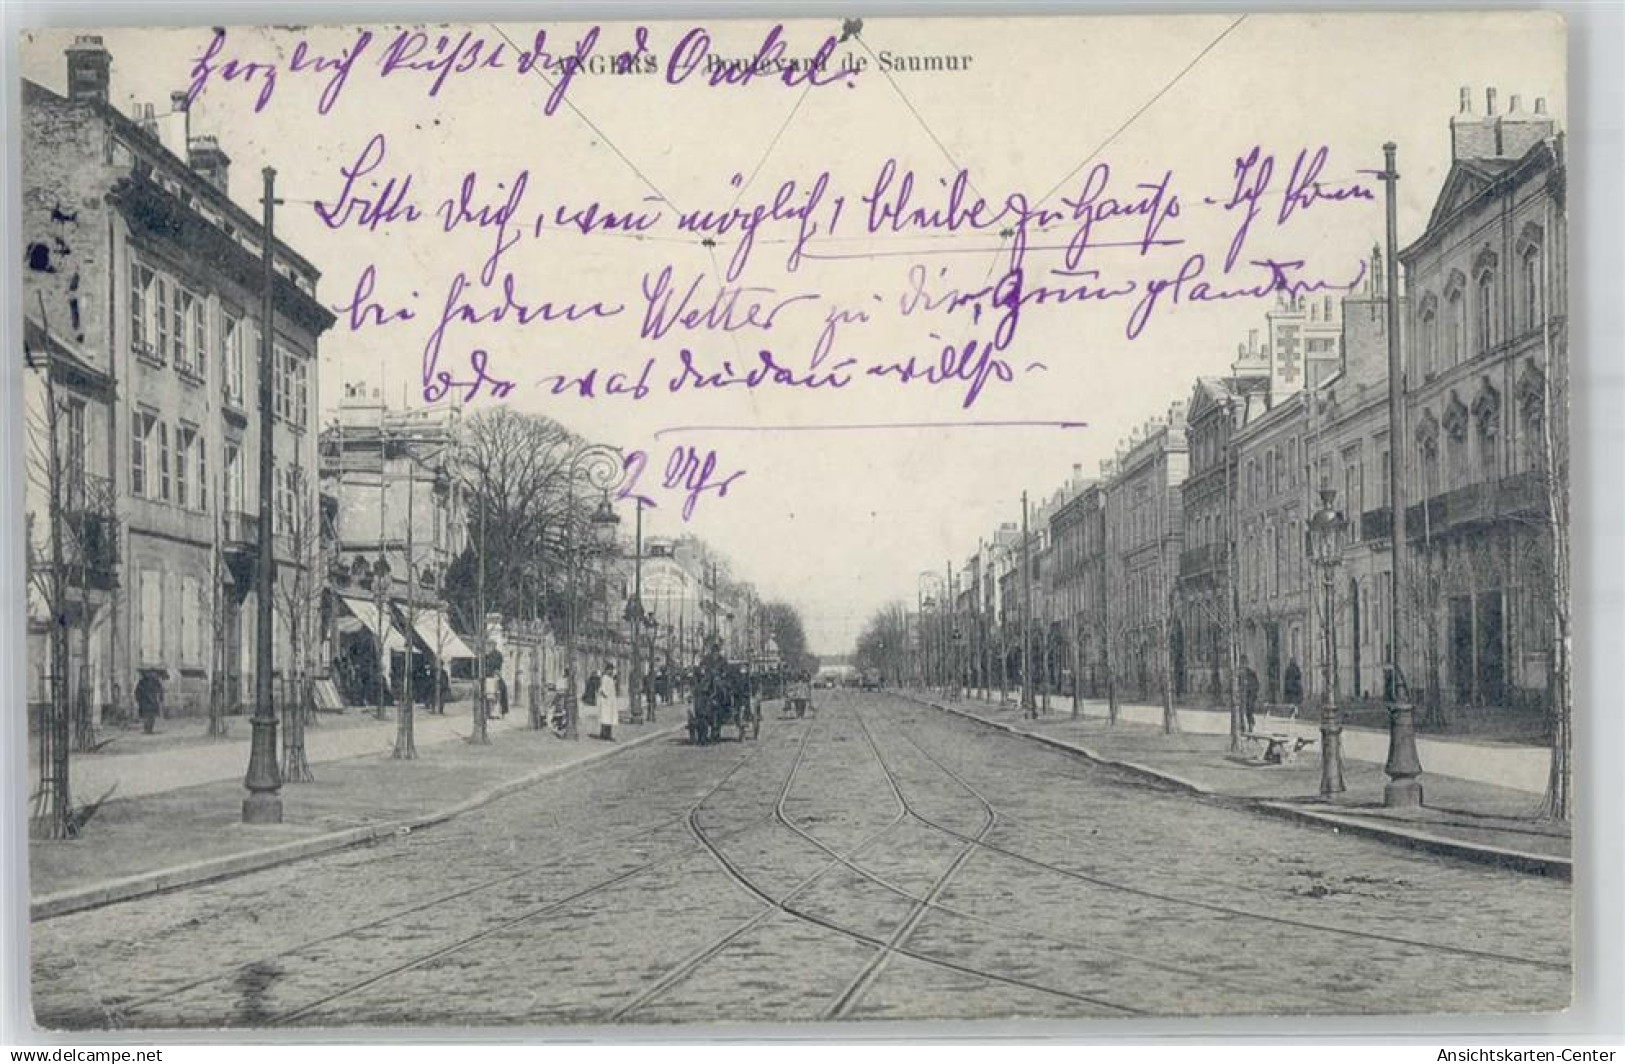 Herzlich küßt dich d Onkel.
ANGERS - Boulevard de Saumur
Bitte dich, wen möglich, bleibe zu Hause. Ich kom
bei jedem Wetter zu dir, zum plaudern
oder was du dan willst -
2 Uhr
delcampe.net
Ansichtskarten-Center